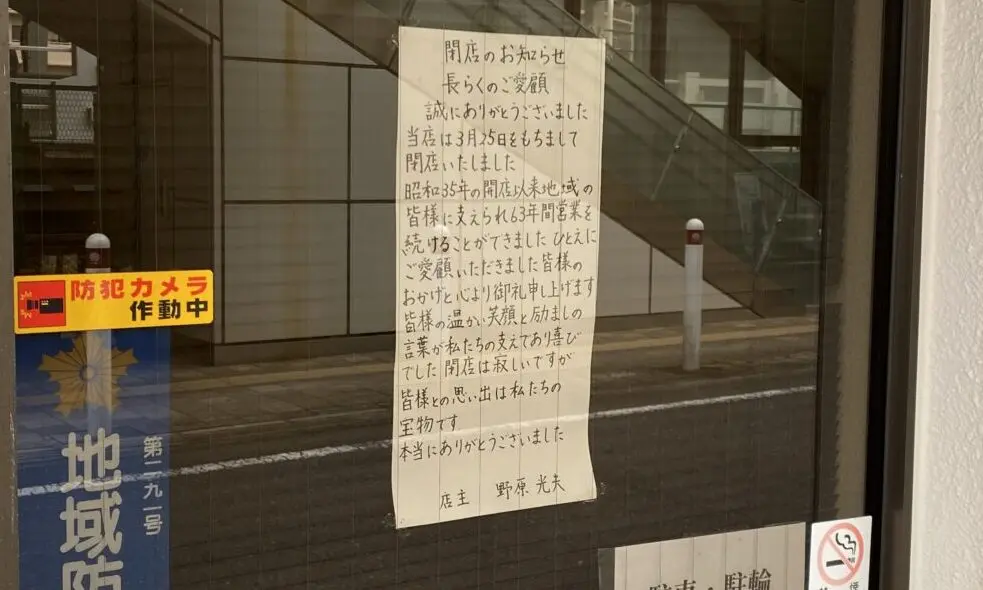 閉店のお知らせ
長らくのご愛顧
誠にありがとうございました
当店は3月25日をもちまして
閉店いたしました
昭和35年の開店以来地域の
皆様に支えられ63年間営業を
続けることができました ひとえに
ご愛顧いただきました皆様の
おかげと心より御礼申し上げます
皆様の温かい笑顔と励ましの
言葉が私たちの支えであり喜び
でした 閉店は寂しいですが
皆様との思い出は私たちの
宝物です
本当にありがとうございました
店主 野原 光夫
防犯カメラ
作動中
第二九一号
地域防
駐車・駐輪